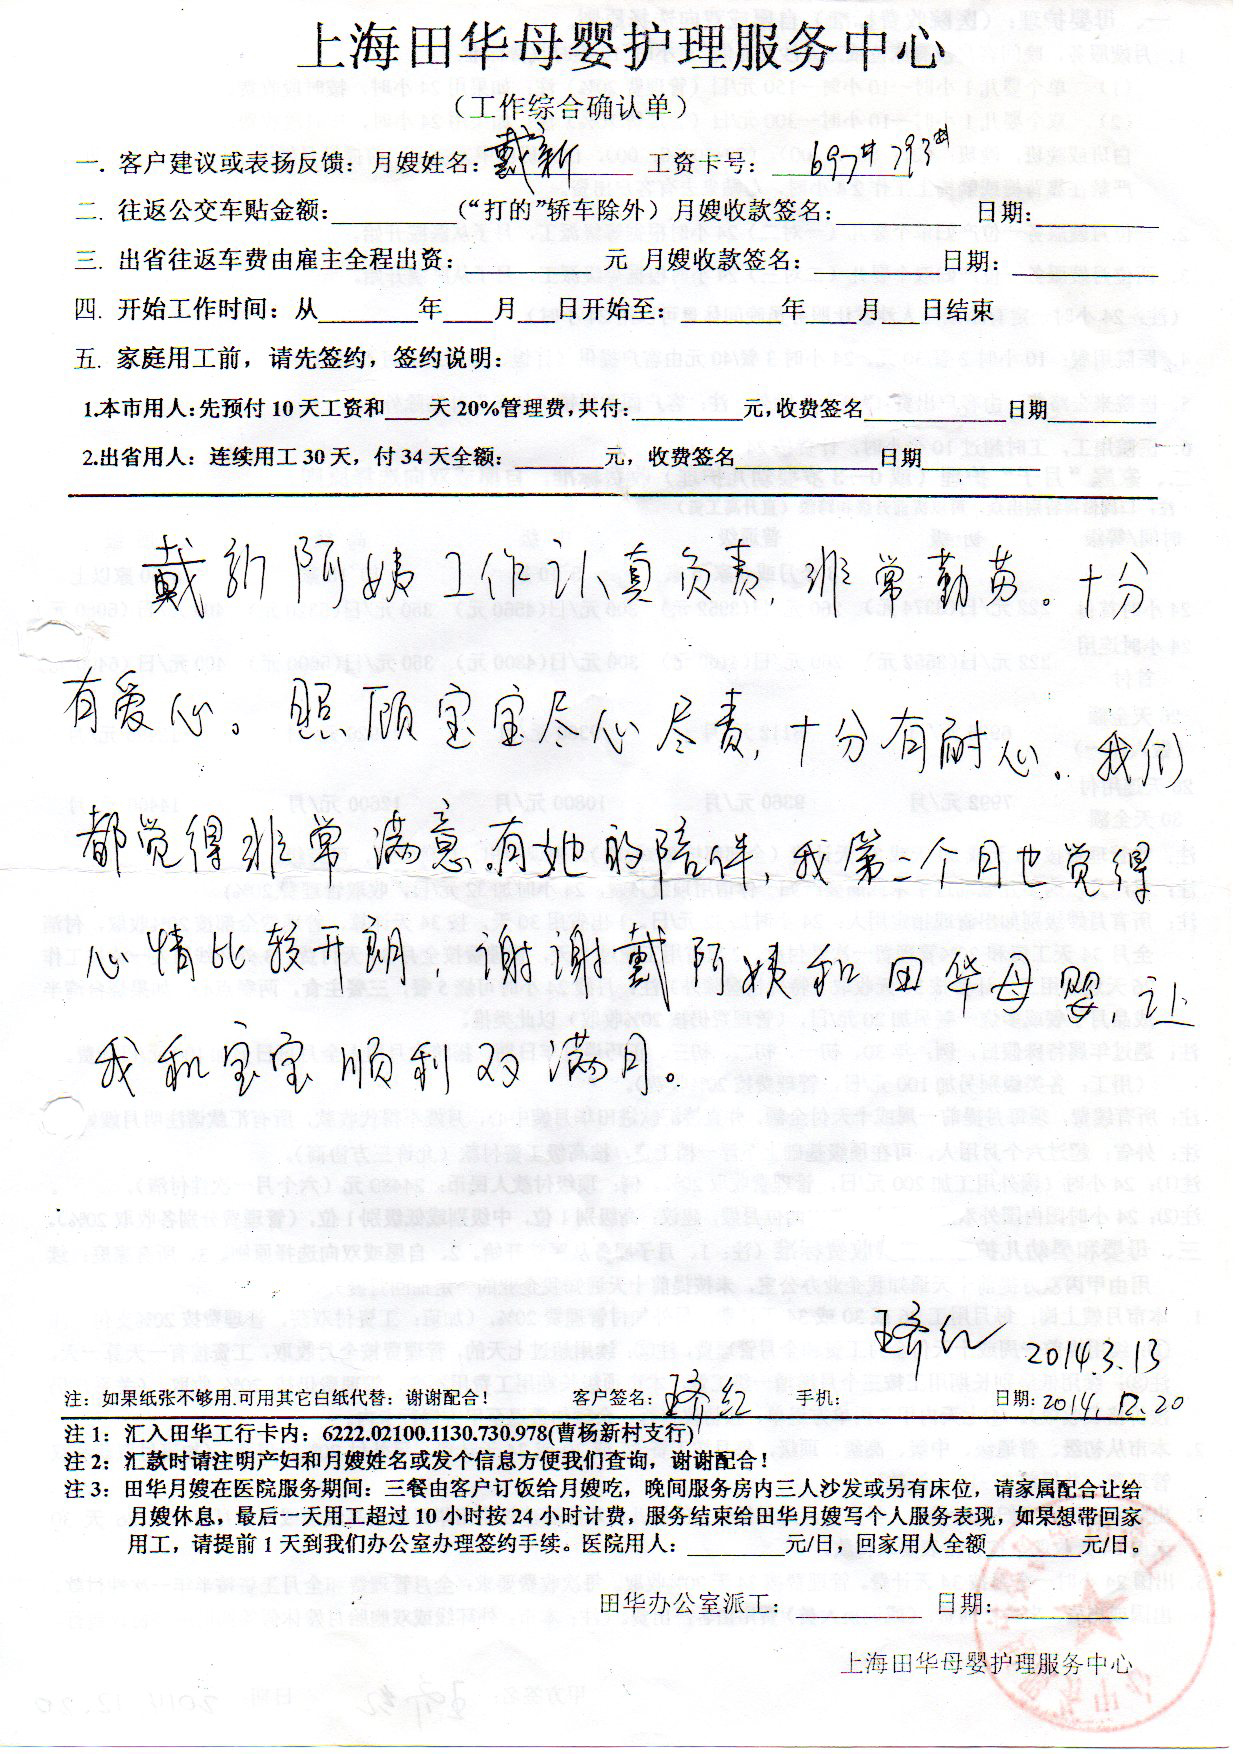 上海田华母婴护理服务中心
（工作综合确认单）
一. 客户建议或表扬反馈：月嫂姓名：戴新 工资卡号：697# 793#
二. 往返公交车贴金额：__________（“打的”轿车除外）月嫂收款签名：__________ 日期：__________
三. 出省往返车费由雇主全程出资：__________ 元 月嫂收款签名：__________日期：__________
四. 开始工作时间：从________年____月___日开始至：________年____月___日结束
五. 家庭用工前，请先签约，签约说明：
1.本市用人：先预付10天工资和____天20%管理费，共付：_________元，收费签名__________日期_________
2.出省用人：连续用工30天，付34天全额：_______元，收费签名__________日期_________
戴新阿姨工作认真负责，非常勤劳。十分
有爱心。照顾宝宝尽心尽责，十分有耐心。我们
都觉得非常满意。有她的陪伴，我第二个月也觉得
心情比较开朗，谢谢戴阿姨和田华母婴，让
我和宝宝顺利双满月。
2014.3.13
注：如果纸张不够用.可用其它白纸代替：谢谢配合！ 客户签名： 手机： 日期：2014.12.20
注1：汇入田华工行卡内：6222.02100.1130.730.978(曹杨新村支行)
注2：汇款时请注明产妇和月嫂姓名或发个信息方便我们查询，谢谢配合！
注3：田华月嫂在医院服务期间：三餐由客户订饭给月嫂吃，晚间服务房内三人沙发或另有床位，请家属配合让给
月嫂休息，最后一天用工超过10小时按24小时计费，服务结束给田华月嫂写个人服务表现，如果想带回家
用工，请提前1天到我们办公室办理签约手续。医院用人：________元/日，回家用人全额________元/日。
田华办公室派工：________ 日期：__________
上海田华母婴护理服务中心